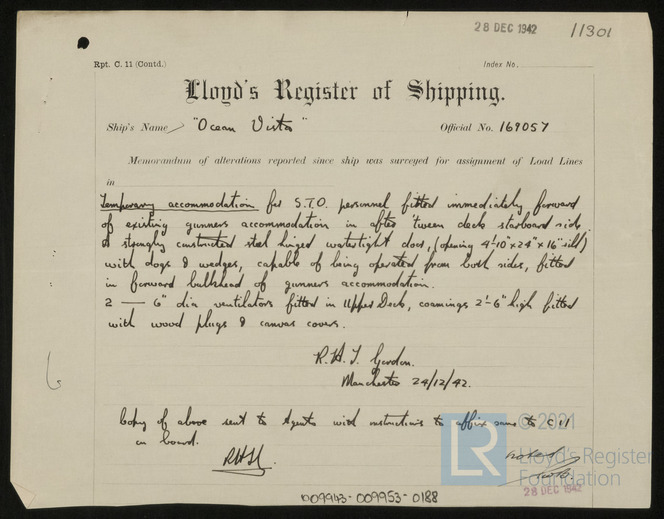 28 DEC 1942
11301
Rpt. C. 11 (Contd.)
Index No.
Lloyd's Register of Shipping.
Ship's Name "Ocean Vista"
Official No. 169057
Memorandum of alterations reported since ship was surveyed for assignment of Load Lines
in
Temporary accommodation for S.T.O. personnel fitted immediately forward
of existing gunners accommodation in after 'tween deck starboard side
A strongly constructed steel hinged watertight door, (opening 4'-10" x 24" x 16" sill)
with dogs & wedges, capable of being operated from both sides, fitted
in forward bulkhead of gunners accommodation.
2 — 6" dia ventilators fitted in Upper Deck, coamings 2'-6" high fitted
with wood plugs & canvas covers.
Gordon.
Manchester 24/12/42.
Copy of above sent to Agents with instructions to affix same to C 11
on board.
noted
LR
© 2021
Lloyd's Register
Foundation
28 DEC 1942
009943-009953-0188